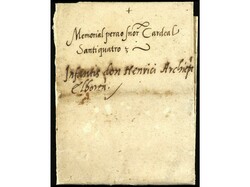 +
Memorial pera o s̃nor Cardeal
Santiquatro &
Infantis don Henrici Archiep̃i
Elboren̄